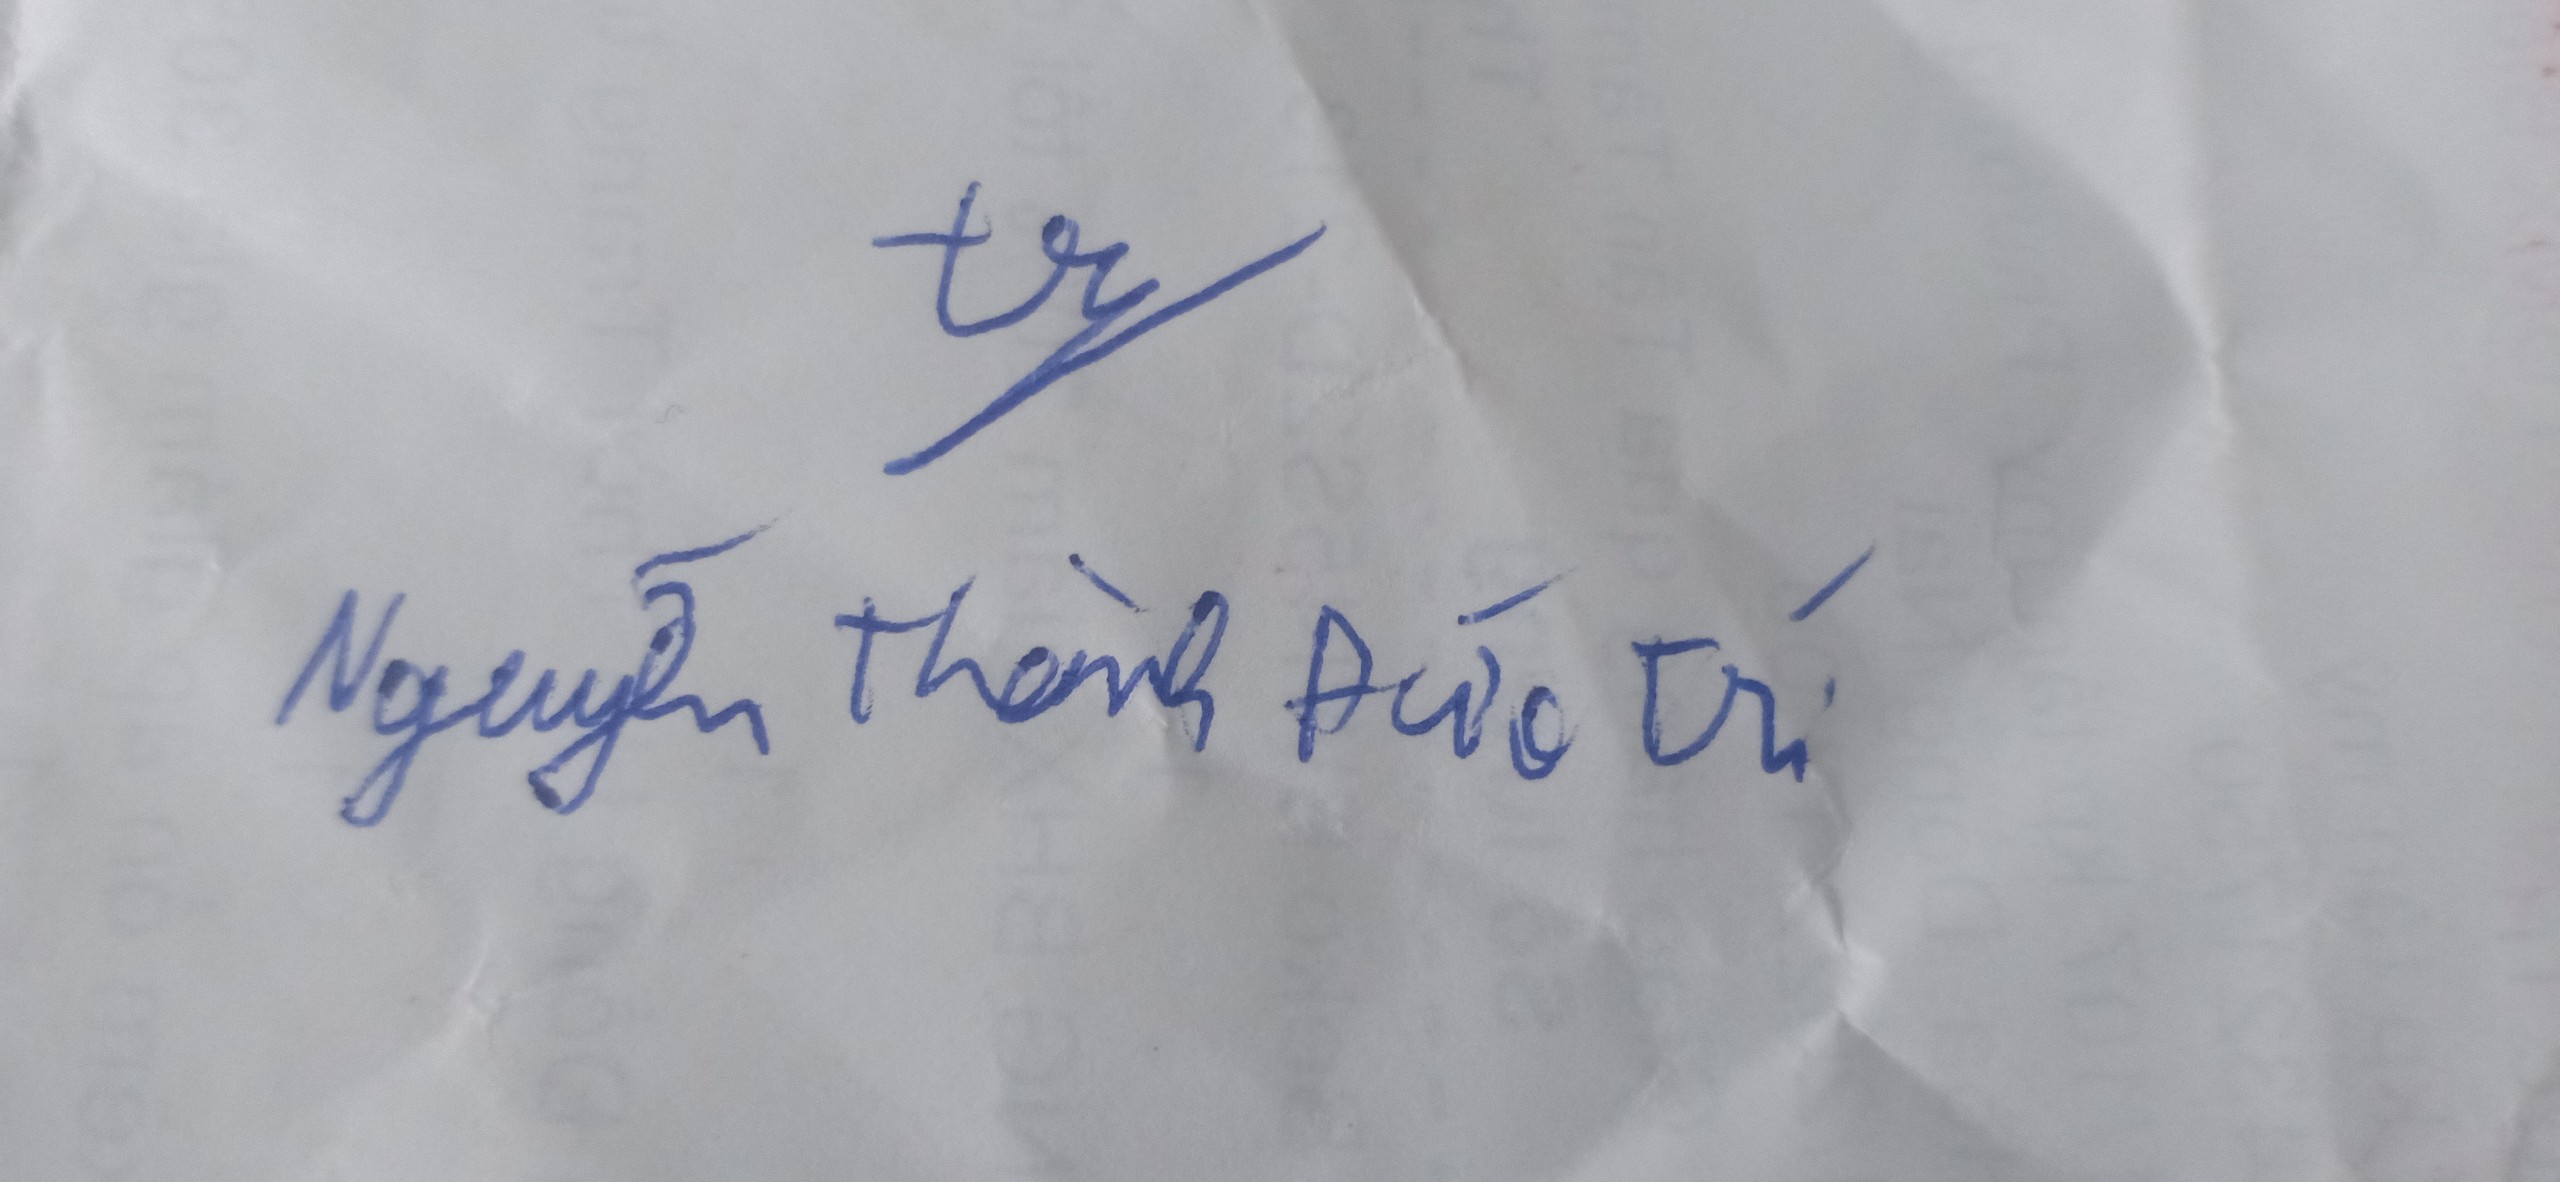 tr
Nguyễn Thành Đức Trí